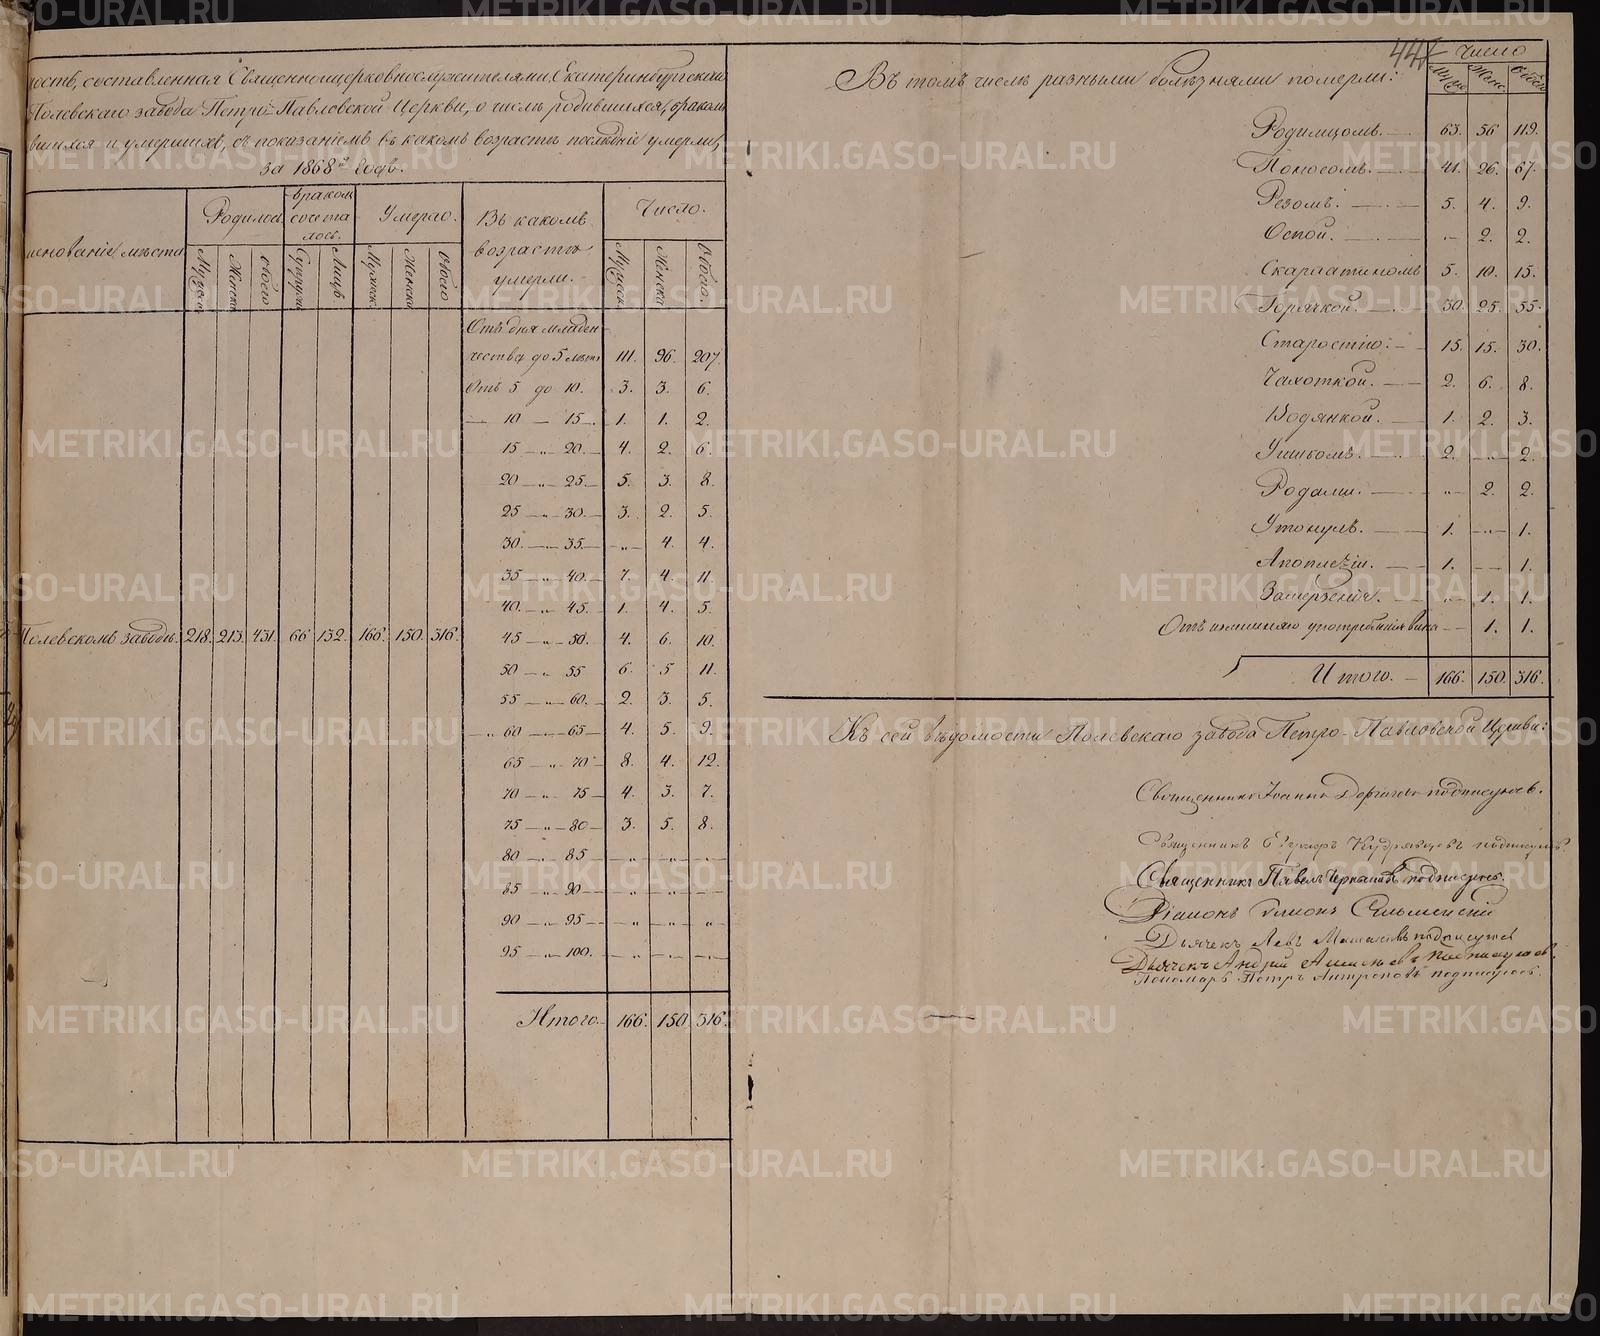 ность, составленная Священноцерковнослужителями, Екатеринбургскаго
Полевскаго завода Петро-Павловской Церкви, о числѣ родившихся, браком
вшихся и умершихъ, съ показаніемъ въ какомъ возрастѣ послѣдніе умерли,
за 1868й годъ.
менованіе мѣста
Родилось
Мужска
Женска
обоего
браком сочеталось.
Супруж
Лицъ
Умерло.
Мужеск
Женска
Обоего
Въ какомъ возрастѣ умерли.
Число.
Мужеска
Женска
Обоего.
Отъ дня младен-
чества до 5 лѣтъ 111. 96. 207.
Отъ 5 до 10. 3. 3. 6.
— 10 — 15 —. 1. 1. 2.
15 — „ 20. — 4. 2. 6.
20 — „ 25. — 5. 3. 8.
25 — „ 30. — 3. 2. 5.
30. — „ 35. — „ — 4. 4.
35 — „ 40. — 7. 4. 11.
40. — „ 45. — 1. 4. 5.
Полевскомъ заводѣ. 218. 213. 431. 66 132. 166. 150. 316.
45 — „ 50. 4. 6. 10.
50 — „ 55 6. 5 11.
55 — „ 60. — 2. 3. 5.
— „ 60 — 65 — 4. 5. 9.
65 — „ 70 — 8. 4. 12.
70 — „ 75 — 4. 3. 7.
75 — „ 80 — 3. 5. 8.
80 — „ 85 — „ — „ — „ —
85 — „ 90 — „ — „ — „ —
90 — „ 95 — „ — „ — „
95 — „ 100. — „ — „ — „ —
Итого. 166. 150. 316.
441
Въ томъ числѣ разными болѣзнями померли:
Число
Муж
Жен.
Обоего
Родимцомъ. 63. 56 119.
Поносомъ. 41. 26. 67.
Рѣзомъ. 5. 4. 9.
Оспой. „ 2. 2.
Скарлатиномъ 5. 10. 15.
Горячкой. 30. 25. 55.
Старостію. 15. 15. 30.
Чахоткой. 2. 6. 8.
Водянкой. 1. 2. 3.
Ушибомъ. 2. „ 2.
Родами. „ 2. 2.
Утонулъ. 1. „ 1.
Апоплексіи. 1. — 1.
Замерзенія. „ 1. 1.
Отъ излишняго употребленія вина — 1. 1.
Итого. — 166. 150. 316.
Къ сей вѣдомости Полевскаго завода Петро-Павловской Церкви:
Священникъ Іоаннъ подписуюсь.
Священникъ Кудрявцевъ подписуюсь.
Священникъ Павелъ подписуюсь.
Діаконъ
Дьячекъ Левъ подписуюсь
Дьячекъ Андрей подписуюсь.
Пономарь Петръ Антроповъ подписуюсь.
METRIKI.GASO-URAL.RU